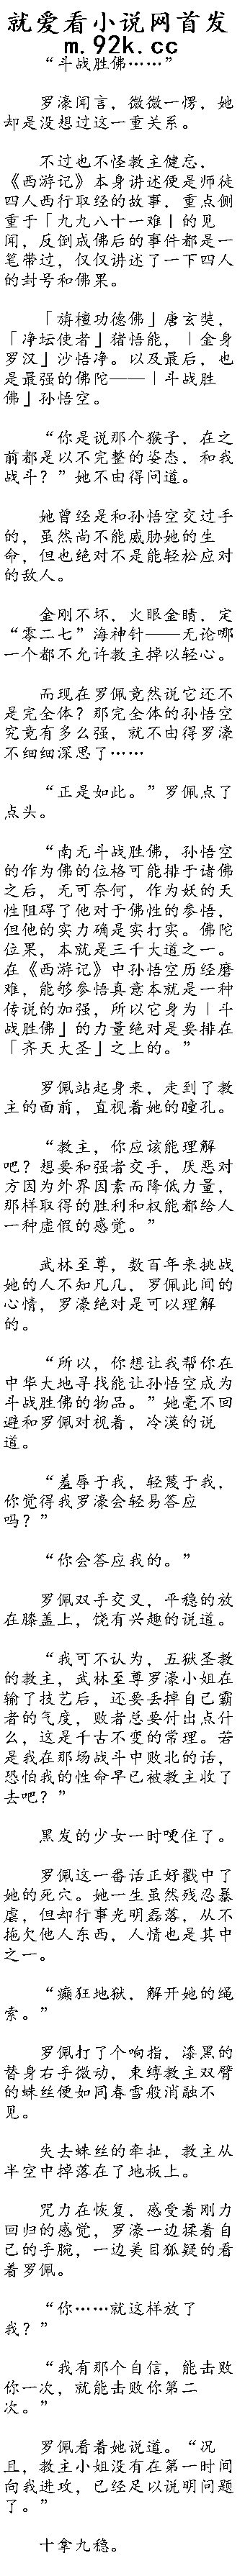 就爱看小说网首发
m.92k.cc
“斗战胜佛……”
罗濠闻言，微微一愣，她
却是没想过这一重关系。
不过也不怪教主健忘，
《西游记》本身讲述便是师徒
四人西行取经的故事，重点侧
重于「九九八十一难」的见
闻，反倒成佛后的事件都是一
笔带过，仅仅讲述了一下四人
的封号和佛果。
「旃檀功德佛」唐玄奘，
「净坛使者」猪悟能，「金身
罗汉」沙悟净。以及最后，也
是最强的佛陀——「斗战胜
佛」孙悟空。
“你是说那个猴子，在之
前都是以不完整的姿态，和我
战斗？”她不由得问道。
她曾经是和孙悟空交过手
的，虽然尚不能威胁她的生
命，但也绝对不是能轻松应对
的敌人。
金刚不坏，火眼金睛，定
“零二七”海神针——无论哪
一个都不允许教主掉以轻心。
而现在罗佩竟然说它还不
是完全体？那完全体的孙悟空
究竟有多么强，就不由得罗濠
不细细深思了……
“正是如此。”罗佩点了
点头。
“南无斗战胜佛，孙悟空
的作为佛的位格可能排于诸佛
之后，无可奈何，作为妖的天
性阻碍了他对于佛性的参悟，
但他的实力确是实打实。佛陀
位果，本就是三千大道之一。
在《西游记》中孙悟空历经磨
难，能够参悟真意本就是一种
传说的加强，所以它身为「斗
战胜佛」的力量绝对是要排在
「齐天大圣」之上的。”
罗佩站起身来，走到了教
主的面前，直视着她的瞳孔。
“教主，你应该能理解
吧？想要和强者交手，厌恶对
方因为外界因素而降低力量，
那样取得的胜利和权能都给人
一种虚假的感觉。”
武林至尊，数百年来挑战
她的人不知凡几，罗佩此间的
心情，罗濠绝对是可以理解
的。
“所以，你想让我帮你在
中华大地寻找能让孙悟空成为
斗战胜佛的物品。”她毫不回
避和罗佩对视着，冷漠的说
道。
“羞辱于我，轻蔑于我，
你觉得我罗濠会轻易答应
吗？”
“你会答应我的。”
罗佩双手交叉，平稳的放
在膝盖上，饶有兴趣的说道。
“我可不认为，五狱圣教
的教主，武林至尊罗濠小姐在
输了技艺后，还要丢掉自己霸
者的气度，败者总要付出点什
么，这是千古不变的常理。若
是我在那场战斗中败北的话，
恐怕我的性命早已被教主收了
去吧？”
黑发的少女一时哽住了。
罗佩这一番话正好戳中了
她的死穴。她一生虽然残忍暴
虐，但却行事光明磊落，从不
拖欠他人东西，人情也是其中
之一。
“癫狂地狱，解开她的绳
索。”
罗佩打了个响指，漆黑的
替身右手微动，束缚教主双臂
的蛛丝便如同春雪般消融不
见。
失去蛛丝的牵扯，教主从
半空中掉落在了地板上。
咒力在恢复，感受着刚力
回归的感觉，罗濠一边揉着自
己的手腕，一边美目狐疑的看
着罗佩。
“你……就这样放了
我？”
“我有那个自信，能击败
你一次，就能击败你第二
次。”
罗佩看着她说道。“况
且，教主小姐没有在第一时间
向我进攻，已经足以说明问题
了。”
十拿九稳。